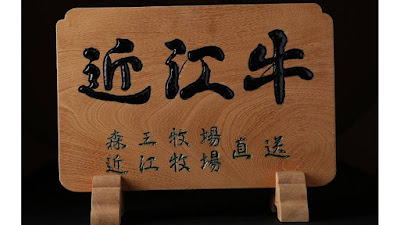 近江牛
森王牧場
近江牧場
直送